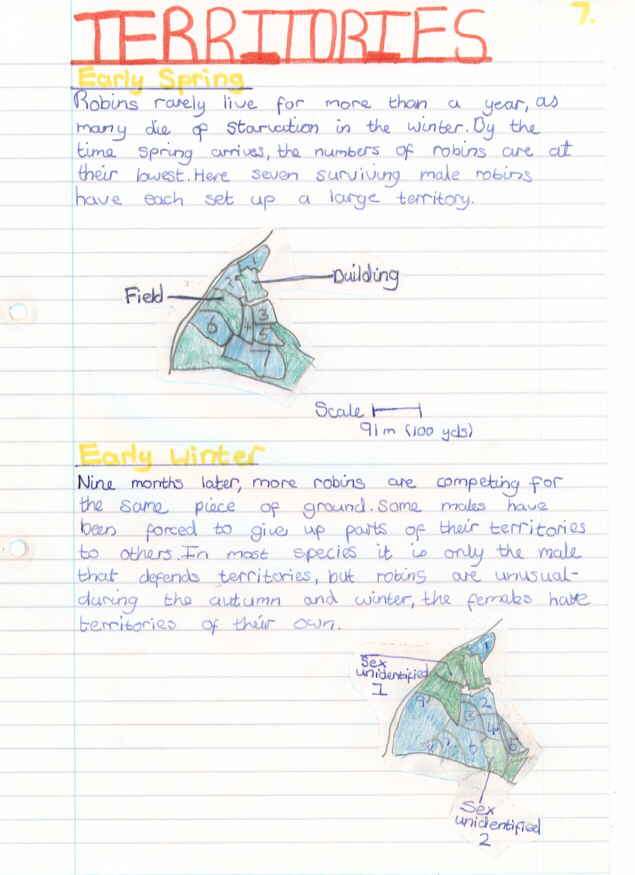 7.
TERRITORIES
Early Spring
Robins rarely live for more than a year, as
many die of starvation in the winter. By the
time spring arrives, the numbers of robins are at
their lowest. Here seven surviving male robins
have each set up a large territory.
1
2
Building
Field
3
4
5
6
7
Scale
91 m (100 yds)
Early Winter
Nine months later, more robins are competing for
the same piece of ground. Some males have
been forced to give up parts of their territories
to others. In most species it is only the male
that defends territories, but robins are unusual-
during the autumn and winter, the females have
territories of their own.
1
Sex
unidentified
1
1
9
2
3
4
6
Sex
unidentified
2